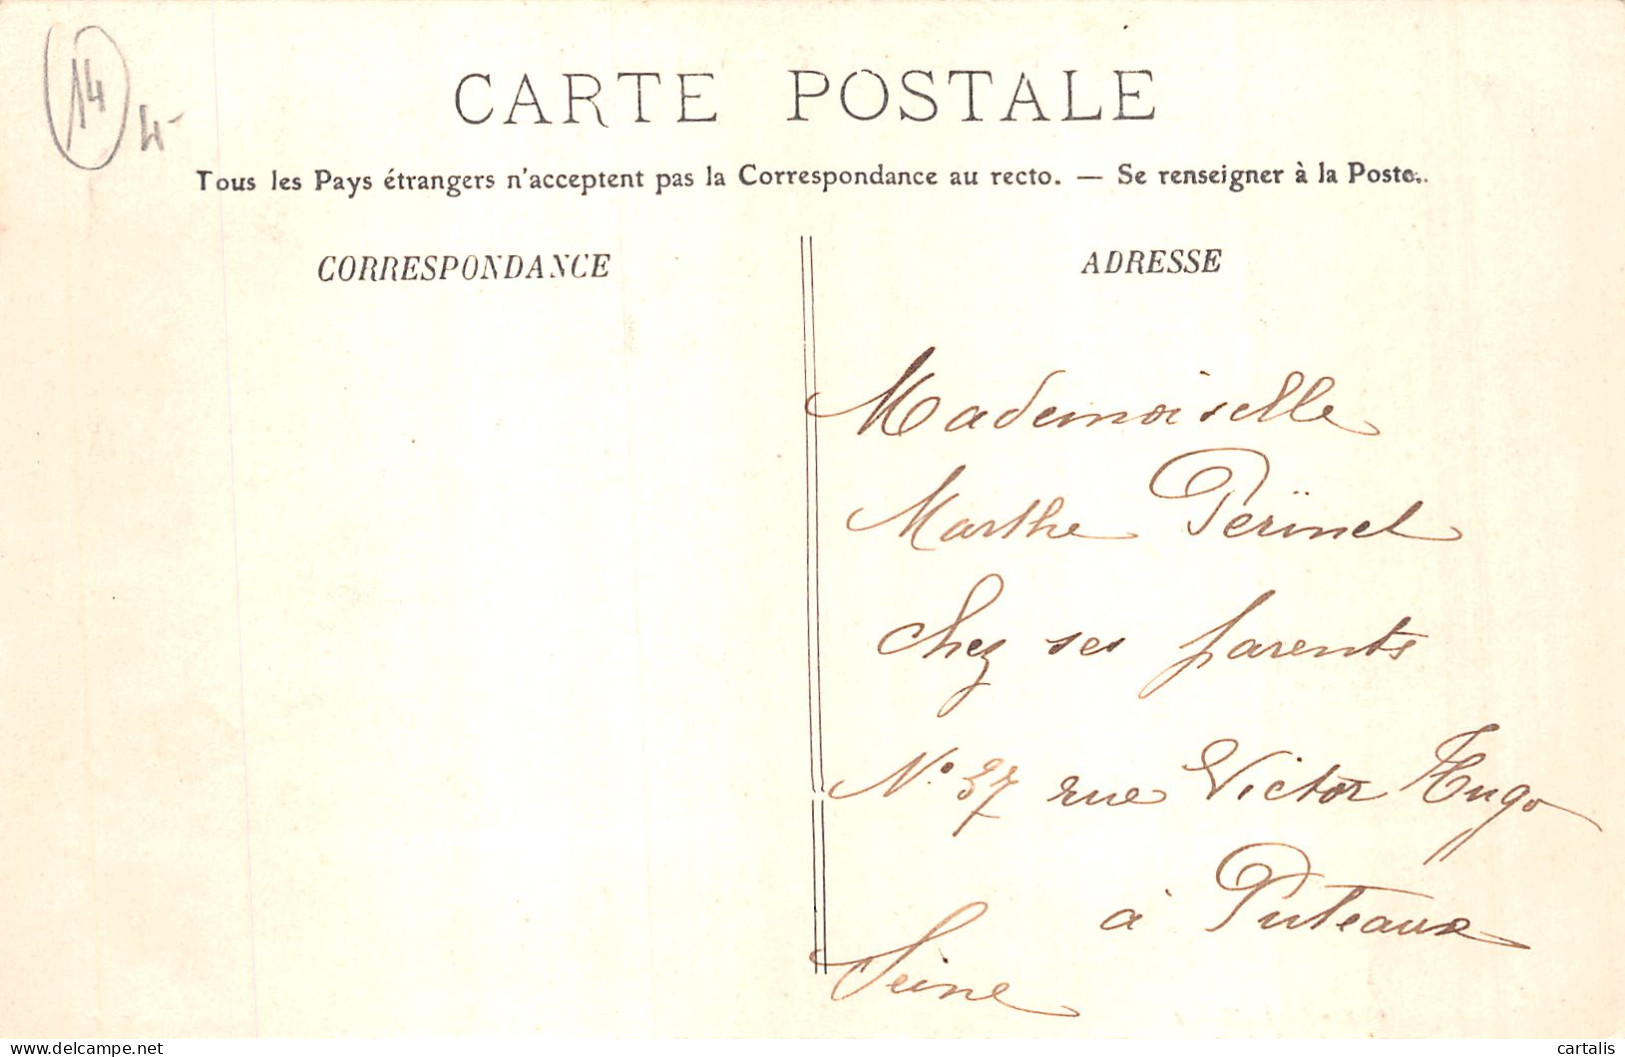 14
4-
CARTE POSTALE
Tous les Pays étrangers n'acceptent pas la Correspondance au recto. — Se renseigner à la Poste.
CORRESPONDANCE
ADRESSE
Mademoiselle
Marthe Perinel
chez ses parents
N° 37 rue Victor Hugo
à Puteaux
Seine
https://www.delcampe.net
cartalis